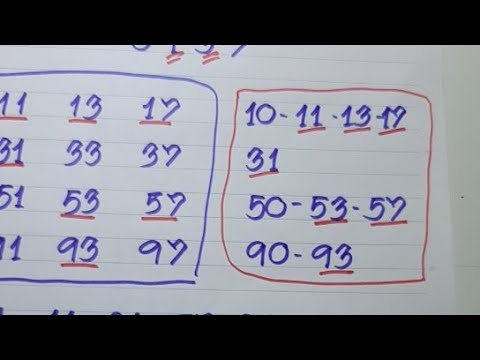 11 13 17
31 33 37
51 53 57
93 97
10-11-13-17
31
50-53-57
90-93